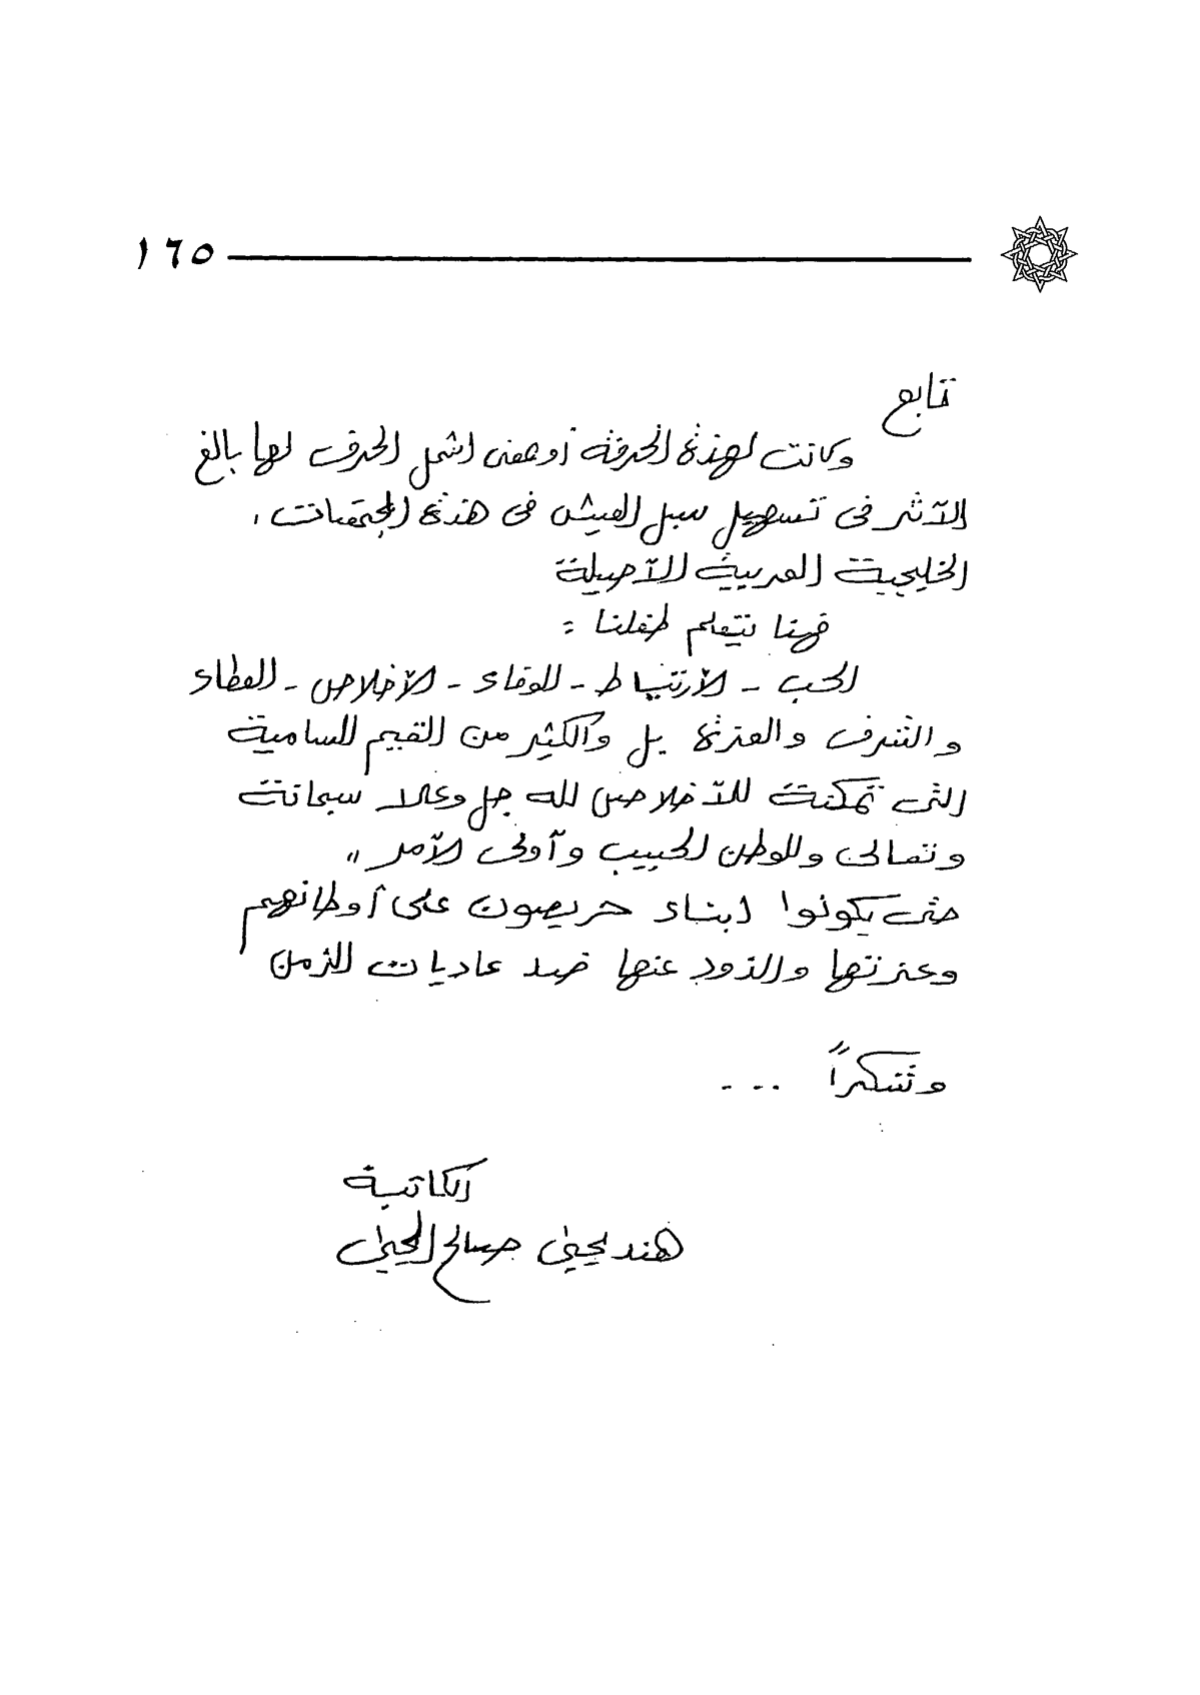 ١٦٥
تابع
وكانت لهذة الحرفة أو معنى اشمل الحرف لها بالغ
الآثر فى تسهيل سبل العيش فى هذة المجتمعات ،
الخليجية العربية الآصيلة
فهنا يتعلم طفلنا :
الحب - الآرتباط - الوفاء - الآخلاص - العطاء
والشرف والعزة بل والكثير من القيم السامية
التى تمكنة للآخلاص لله جل وعلا سبحانة
وتعالى وللوطن الحبيب وآولى الآمر "
حتى يكونوا ابناء حريصون على أوطانهم
وعزتها والذود عنها ضد عاديات الزمن
وشكراً ...
الكاتبة
هند يحيى صالح اليحيى